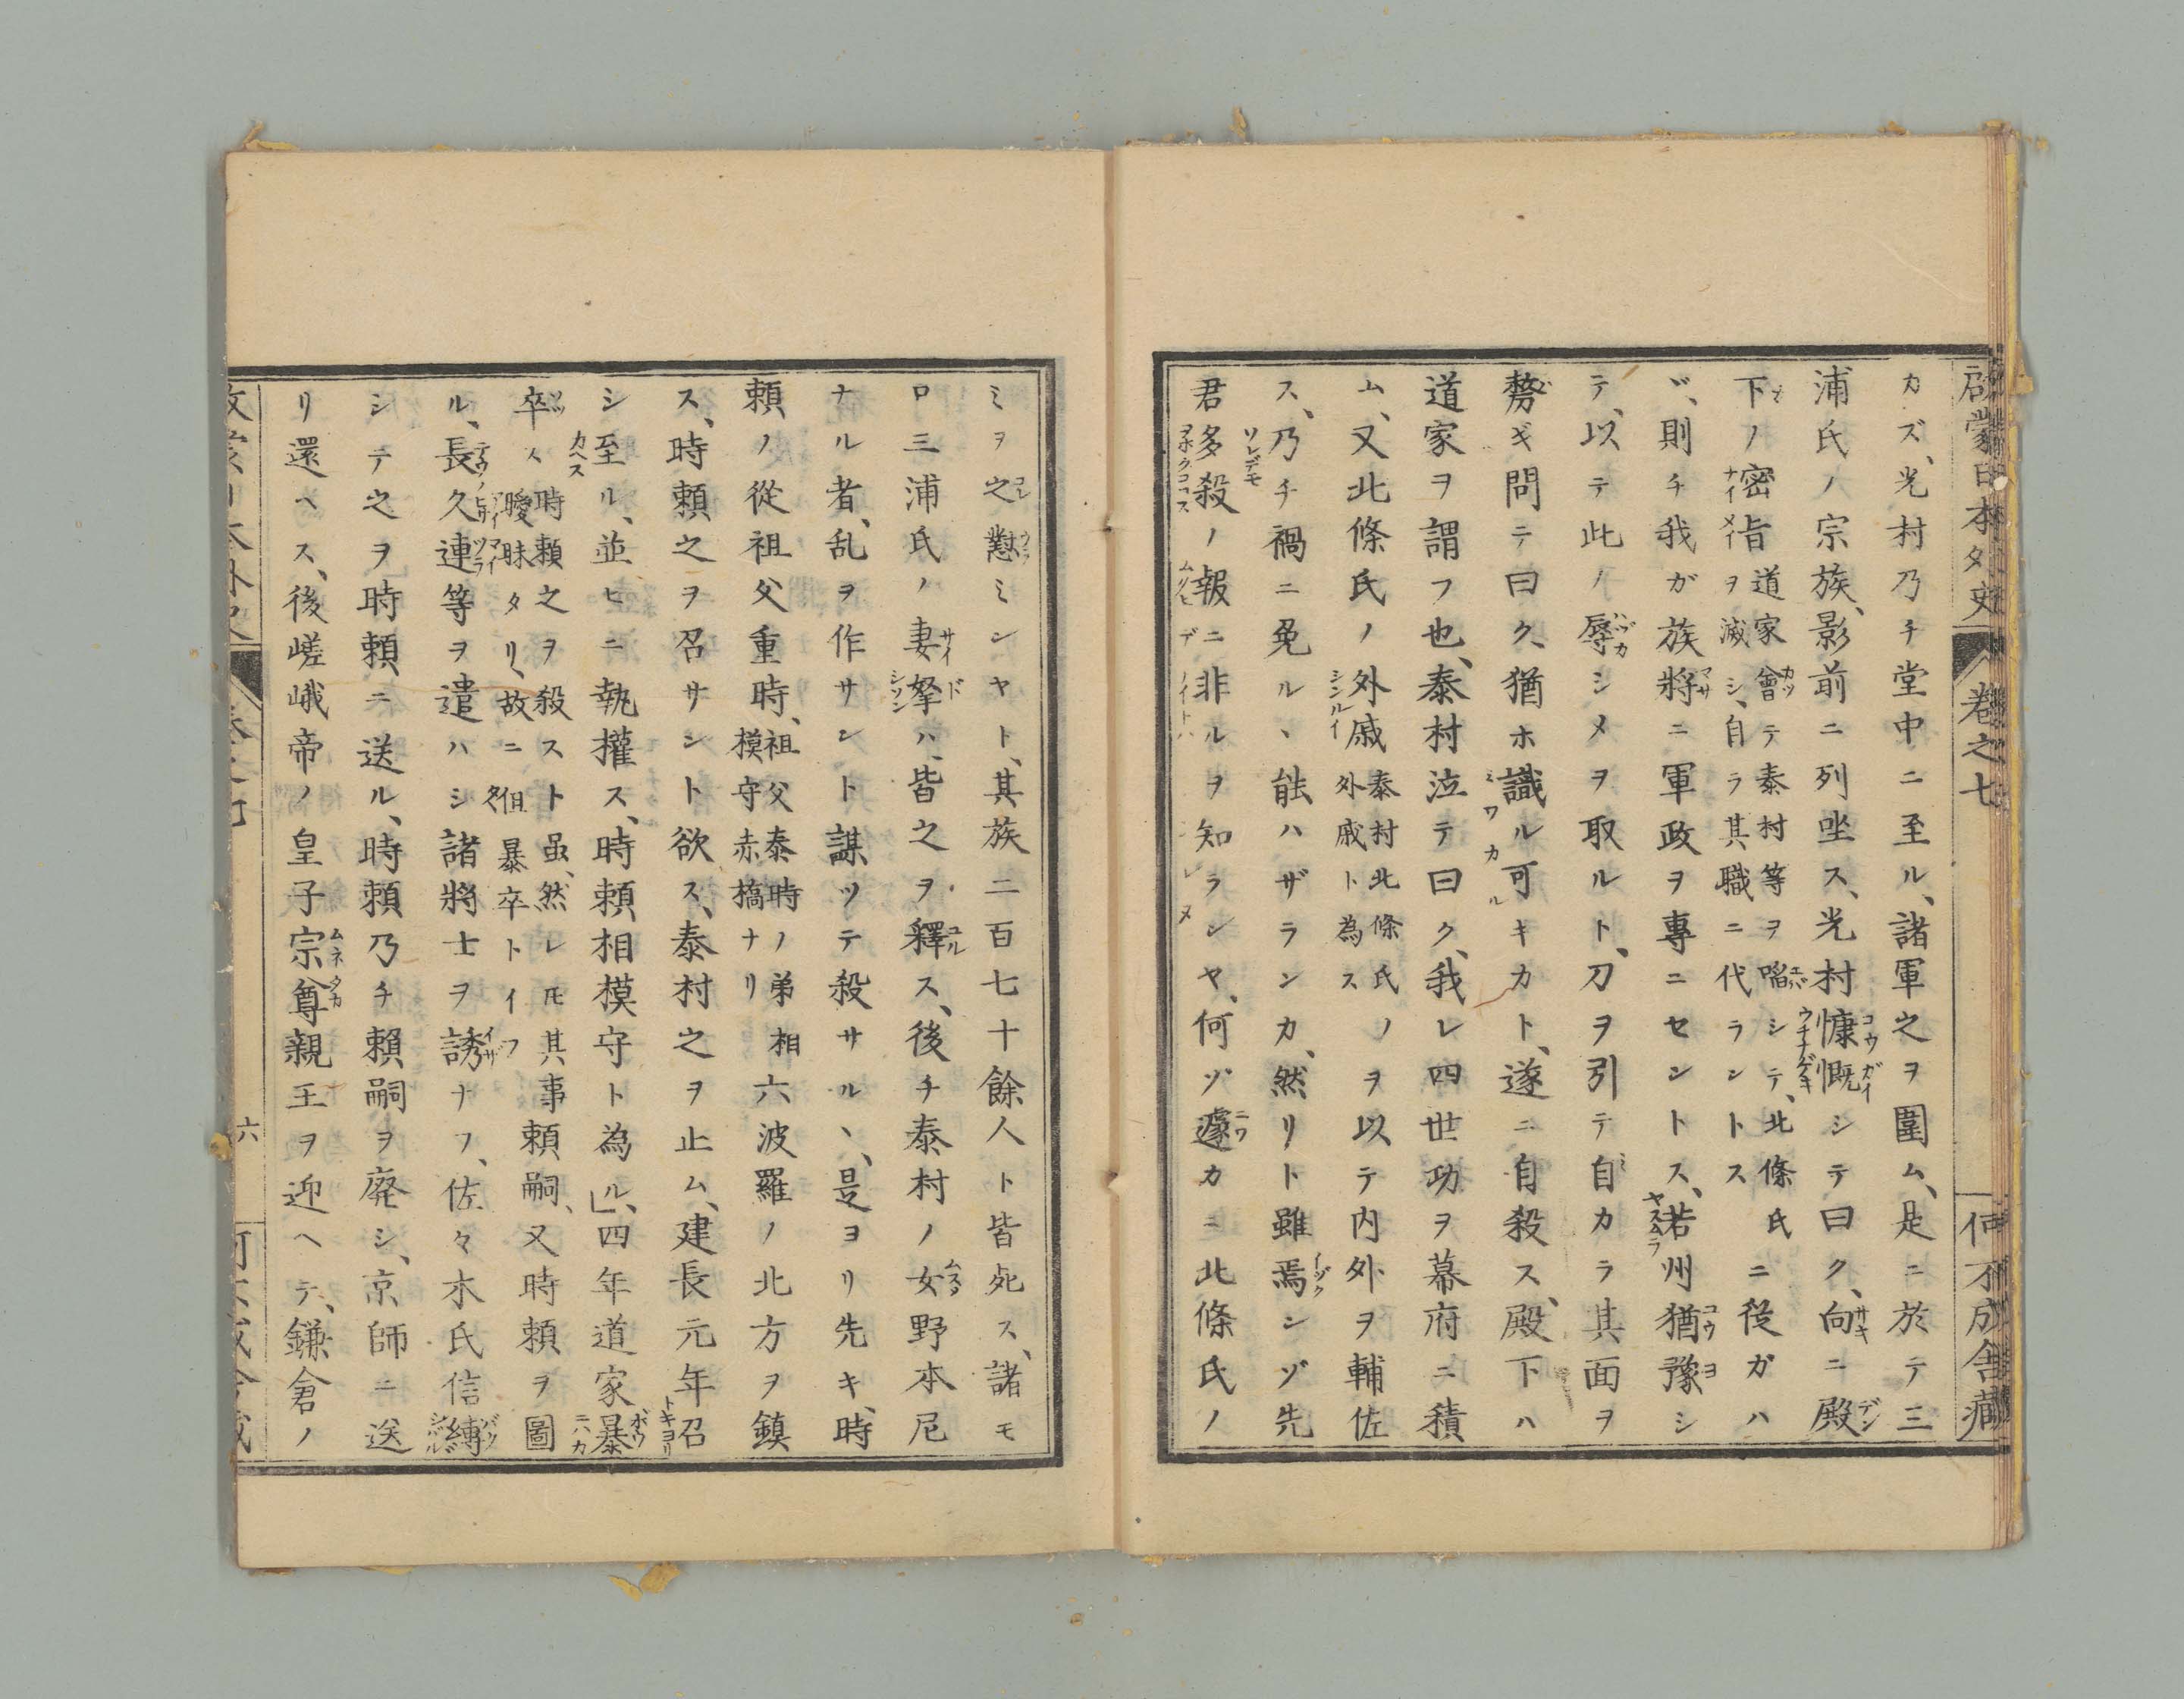 啓蒙日本外史 巻之七 何不成舎蔵
カズ、光村乃チ堂中ニ至ル、諸軍之ヲ圍ム、是ニ於テ三
浦氏ノ宗族、影前ニ列坐ス、光村慷慨シテ曰ク、向ニ殿
下ノ密旨道家會テ泰村等ヲ啗シテ、北條氏ヲ滅シ、自ラ其職ニ代ラントスニ從ガハ
ヾ、則チ我ガ族將ニ軍政ヲ專ニセントス、若州猶豫シ
テ、以テ此ノ辱シメヲ取ルト、刀ヲ引テ自カラ其面ヲ
剺ギ問テ曰ク、猶ホ識ル可キカト、遂ニ自殺ス、殿下ハ
道家ヲ謂フ也、泰村泣テ曰ク、我レ四世功ヲ幕府ニ積
ム、又北條氏ノ外戚泰村北條氏ノ外戚ト為スヲ以テ内外ヲ輔佐
ス、乃チ禍ニ免ルヽ能ハザランカ、然リト雖焉ンゾ先
君多殺ノ報ニ非ルヲ知ランヤ、何ゾ遽カニ北條氏ノ
ミヲ之懟ミンヤト、其族二百七十餘人ト皆死ス、諸モ
ロ三浦氏ノ妻孥ハ、皆之ヲ釋ス、後チ泰村ノ女野本尼
ナル者、乱ヲ作サント謀ツテ殺サルヽ、是ヨリ先キ、時
頼ノ從祖父重時、祖父泰時ノ弟相模守赤橋ナリ六波羅ノ北方ヲ鎮
ス、時頼之ヲ召サント欲ス、泰村之ヲ止ム、建長元年召
シ至ル、並ヒニ執權ス、時頼相模守ト為ル、」四年道家暴
卒ス時頼之ヲ殺スト雖、然レ𪜈其事曖昧タリ、故ニ但暴卒トイフ頼嗣、又時頼ヲ圖
ル、長久連等ヲ遣ハシ諸將士ヲ誘ナフ、佐々木氏信縛
シテ之ヲ時頼ニ送ル、時頼乃チ頼嗣ヲ廃シ、京師ニ送
リ還ヘス、後嵯峨帝ノ皇子宗尊親王ヲ迎ヘテ、鎌倉ノ
六